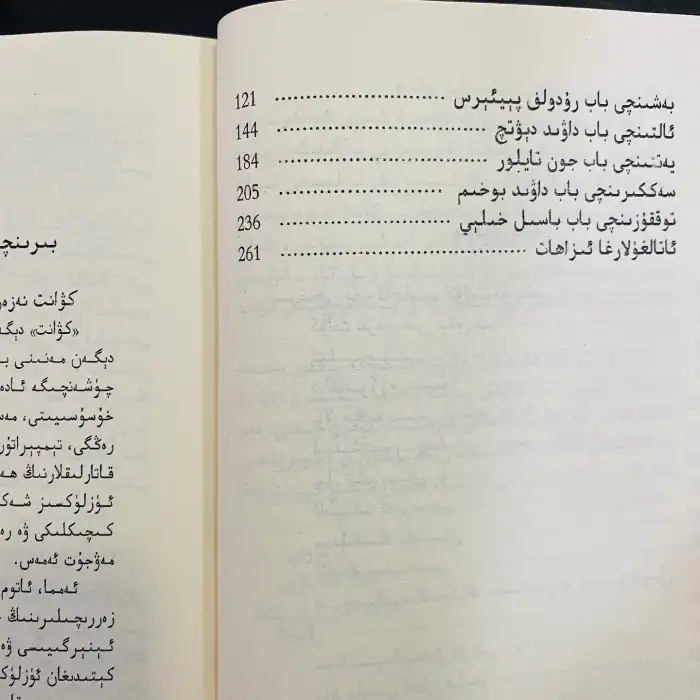 بەشىنچى باب رۇدولف پېيئېرس ........................ 121
ئالتىنچى باب داۋىد دېۋتچ ............................. 144
يەتتىنچى باب جون تايلور ............................. 184
سەككىزىنچى باب داۋىد بوخىم ....................... 205
توققۇزىنچى باب باسىل خىلېي ........................ 236
ئاتالغۇلارغا ئىزاھات ................................... 261
بىرىنچ
كۋانت نەزەر
«كۋانت» دېگە
دېگەن مەنىنى ب
چۈشەنچىگە ئادە
خۇسۇسىيىتى، مەس
رەڭگى، تېمپېراتۇر
قاتارلىقلارنىڭ ھە
ئۈزلۈكسىز شەك
كىچىكلىكى ۋە رە
مەۋجۇت ئەمەس.
ئەمما، ئاتوم
زەررىچىلىرىنىڭ
ئېنېرگىيىسى ۋە
كېتىدىغان ئۈزلۈك